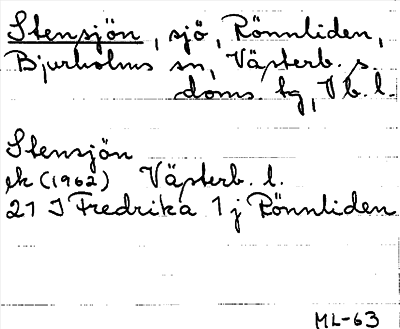 Stensjön, sjö, Rönnliden,
Bjurholms sn, Västerb. s.
doms. hg, Vb. l.
Stensjön
ek (1962) Västerb. l.
21 J Fredrika 1 j Rönnliden
ML-63